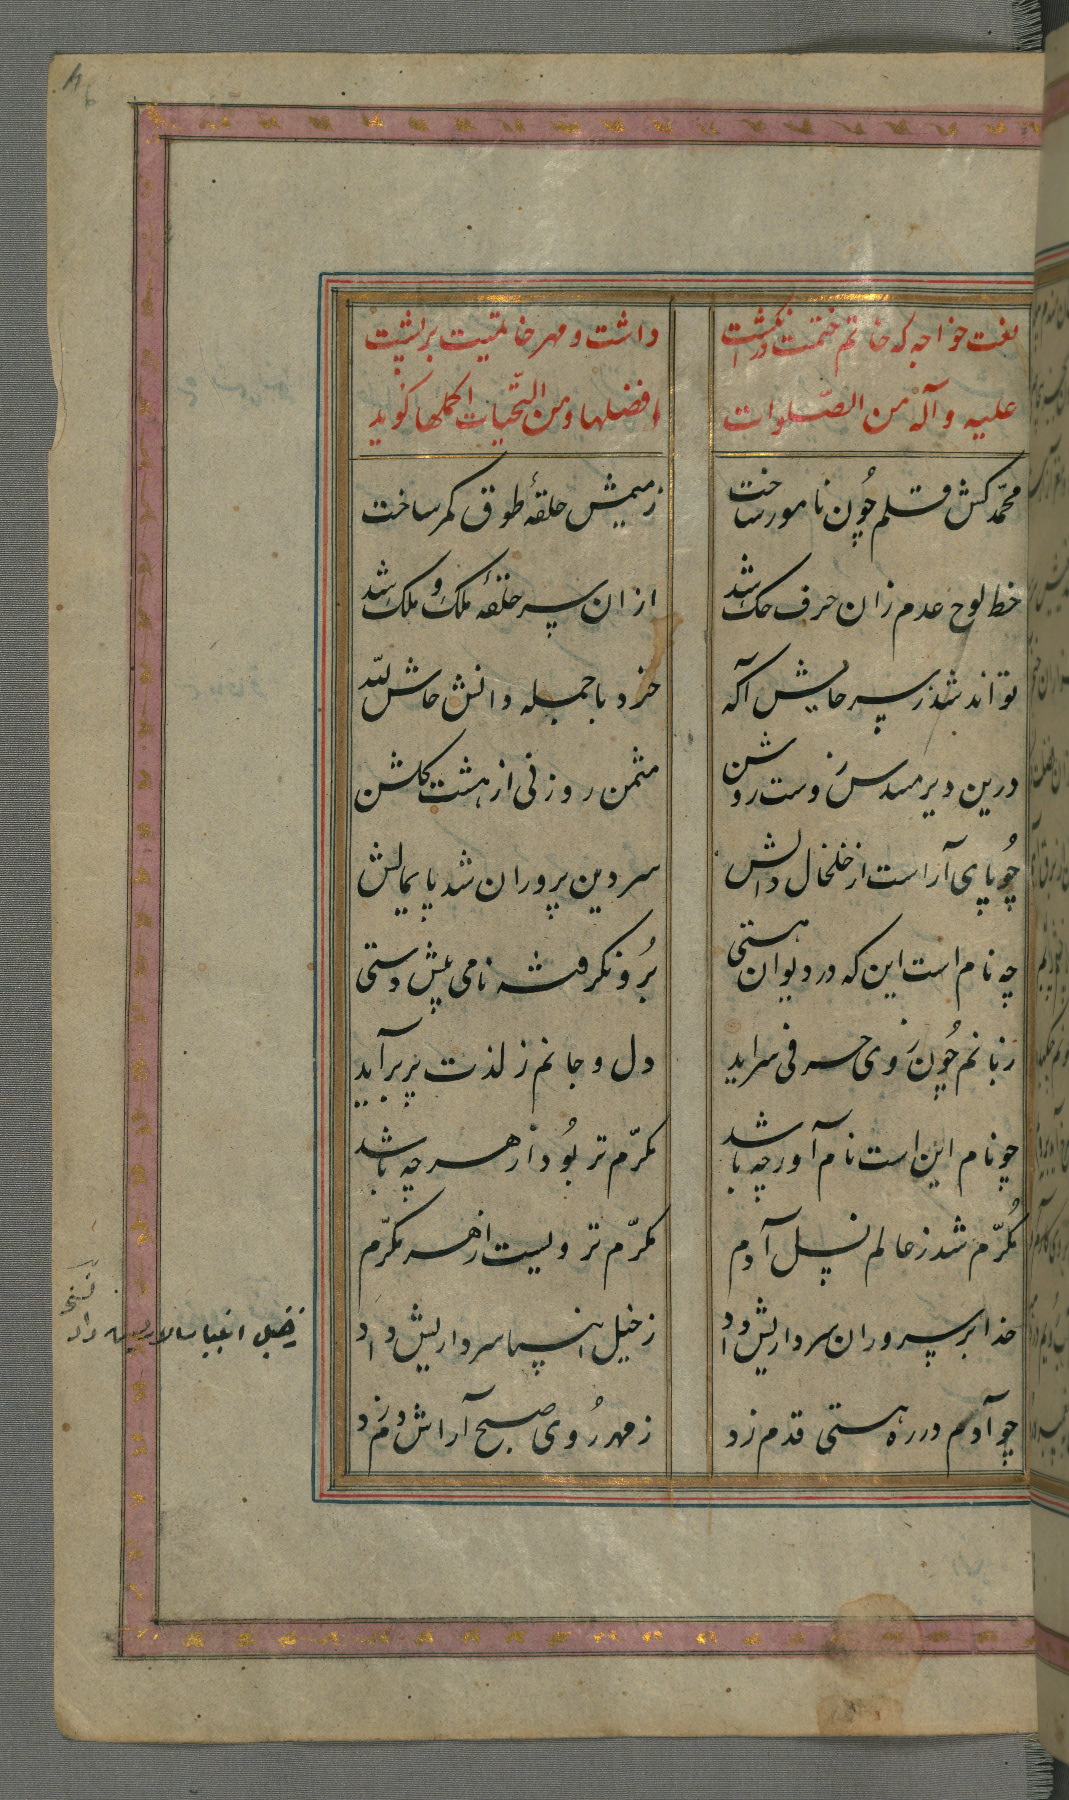 نعت خواجه که خاتم ختمت در انگشت داشت و مهر خاتمیت بر پشت
علیه و آله من الصّلوات افضلها و من التّحیات اکملها گوید
محمّد کش قلم چُون نامور ساخت ز میمش حلقهٔ طوق کمر ساخت
خط لوح عدم زان حرف حک شد ازان سر حلقهٔ ملک و ملک شد
تواند شد ز سر حایش آگه خرد با جمله دانش حاش للّه
درین دیر مسدس زوست روشن مثمن روزنی از هشت گلشن
چُو پای آراست از خلخال دالش سر دین پروران شد پایمالش
چه نام است این که در دیوان هستی برُو نگرفته نامی پیش دستی
زبانم چُون ز وی حرفی سراید دل و جانم ز لذت پر برآید
چو نام این است نام آور چه باشد مکرّم تر بُود از هر چه باشد
مُکرّم شد ز عالم نسل آدم مکرّم تر ویست از هر مکرّم
خدا بر سروران سرداریش داد ز خیل انبیا سرداریش داد
ز خیل انبیا سالاریش داد نسخه
چو آدم در ره هستی قدم زد ز مهر رُوی صبح آراش دم زد